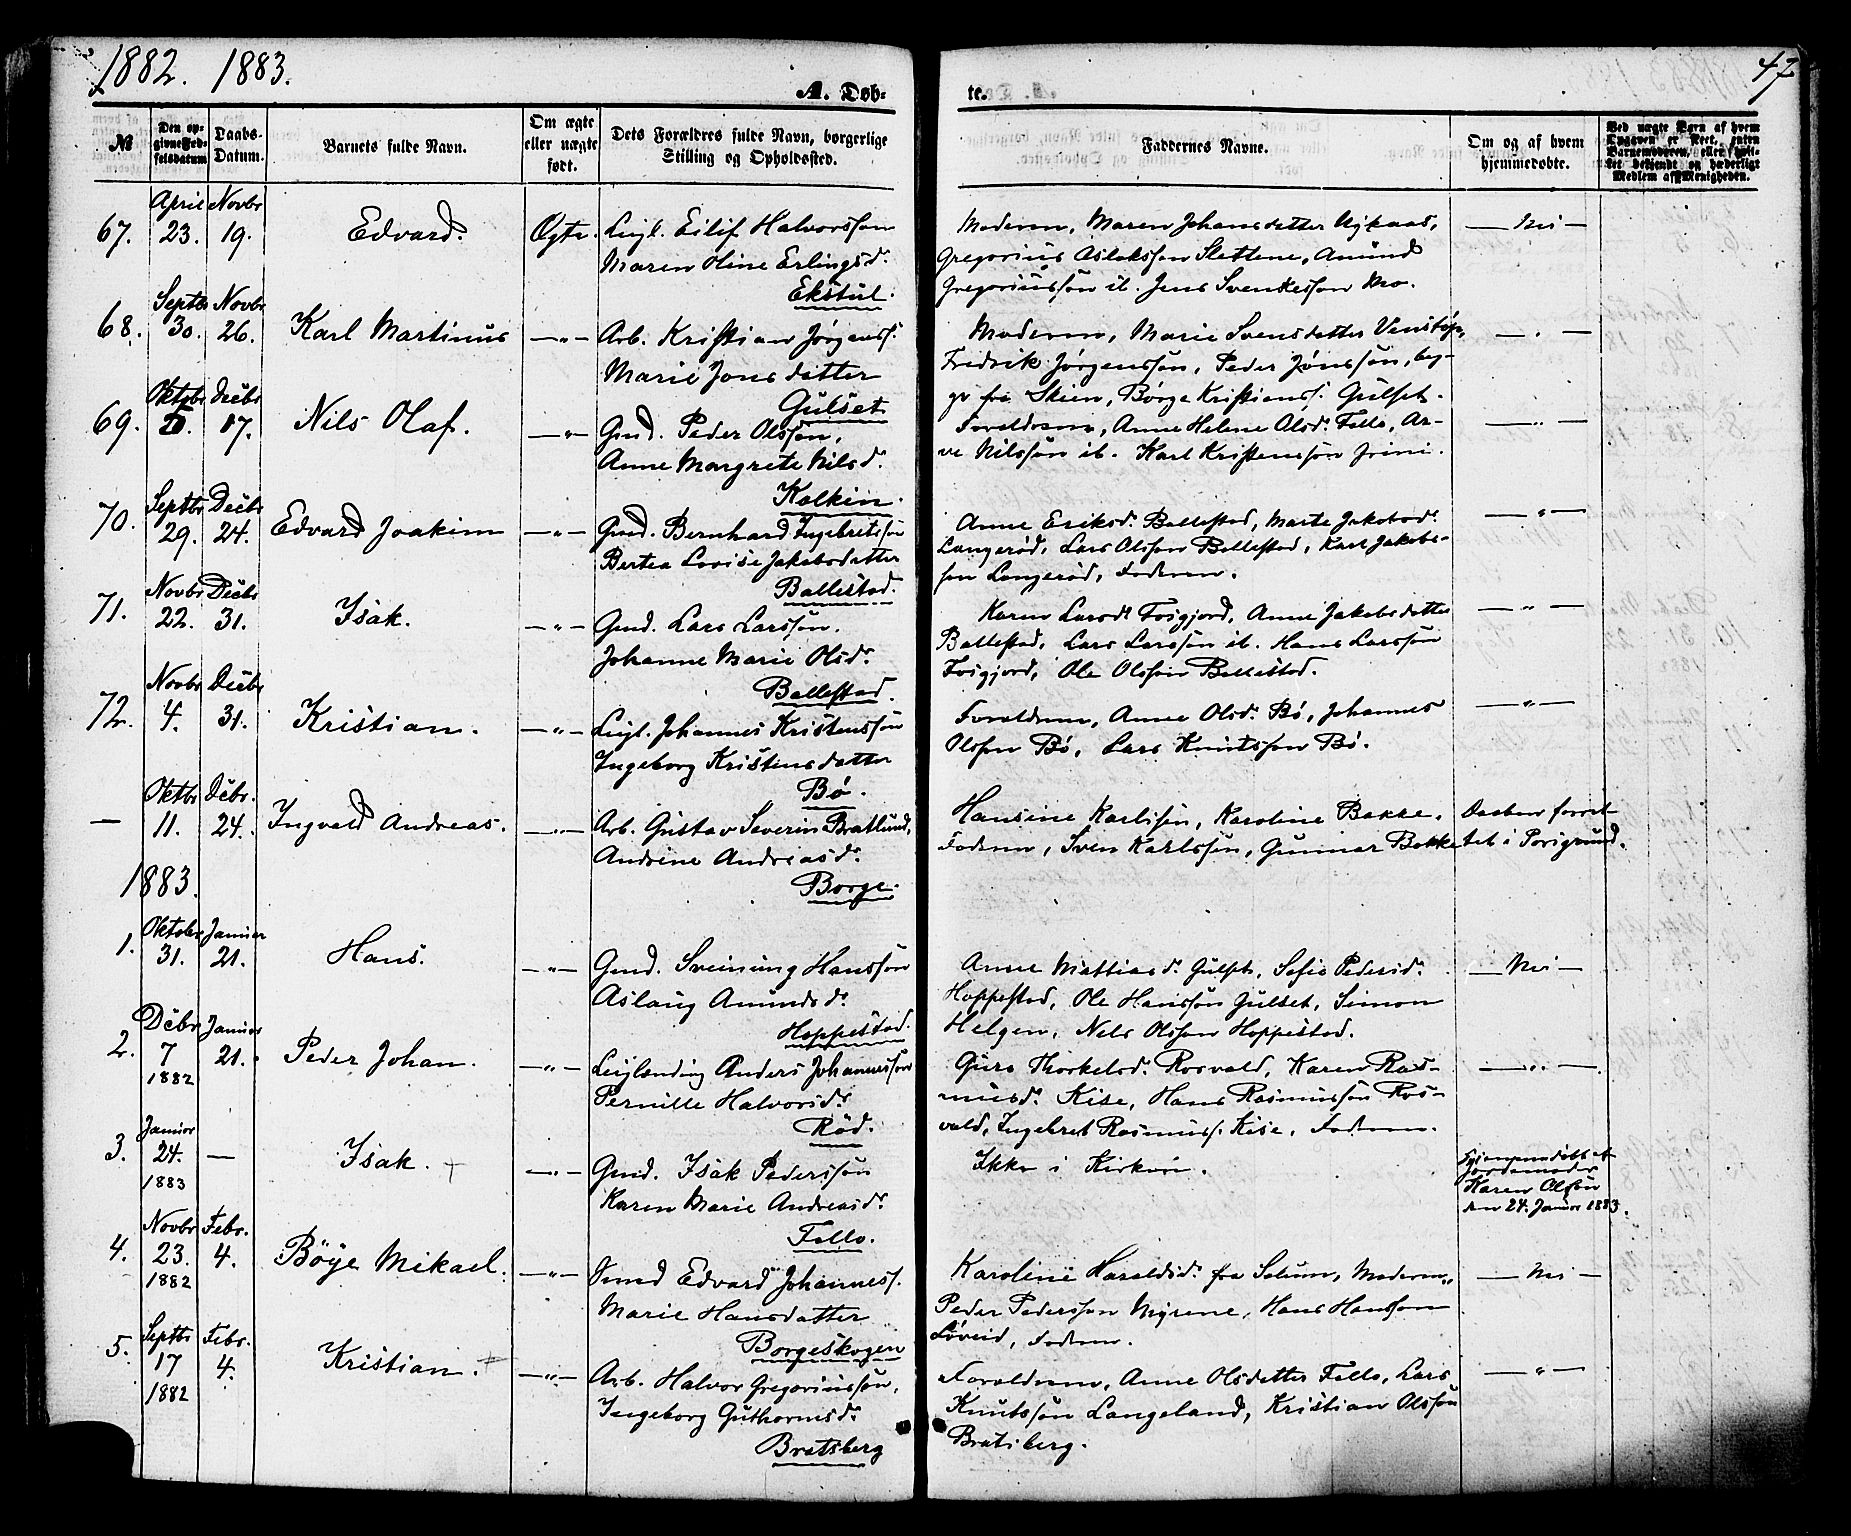 1882. 1883.
47
A. Døb-
te.
№
Den op-
givne Fød-
selsdatum
Daabs-
Datum.
Barnets fulde Navn.
Om ægte
eller uægte
født.
Dets Forældres fulde Navn, borgerlige
Stilling og Opholdssted.
Faddernes Navne.
Om og af hvem
hjemmedøbte.
Ved uægte Børn af hvem
Opgaven er skeet, enten
Barnemoderen, eller hvil-
ket bekjendt og hæderligt
Medlem af Menigheden.
67.
April
23.
Novbr
19.
Edvard.
Ægte.
Leigl. Eilif Halvorssøn
Maren Stine Erlingsd.
Ekstul.
Moderen, Maren Johansdatter Nykaas,
Gregorius Aslakssøn Slettene, Amund
Gregoriussøn ib. Jens Svenkessøn Mo.
— Nei —
68.
Septbr
30.
Novbr
26.
Karl Martinus
—"—
Arb. Kristian Jørgenss.
Marie Jonsdatter
Gulset
Moderen, Marie Svensdatter Venstøp,
Fredrik Jørgenssøn, Peder Jønssøn, beg-
ge fra Skien, Børge Kristianss. Gulset.
— " —
69.
Oktobr
5.
Decbr
17.
Nils Olaf.
—"—
Gmd. Peder Olssøn,
Anne Margrete Nilsd.
Kolkin.
Forældrene, Anne Helene Olsd. Fello, Ar-
ve Nilssøn ib. Karl Kristenssøn Grini.
— " —
70.
Septbr
29.
Decbr
24.
Edvard Joakim
—"—
Gmd. Bernhard Ingebretssøn
Bertea Lovise Jakobsdatter
Ballestad.
Anne Eriksd. Ballestad, Marte Jakobsd.
Langerød, Lars Olssøn Ballestad, Karl Jakobs-
søn Langerød, Faderen.
— " —
71.
Novbr
22.
Decbr
31.
Isak.
—"—
Gmd. Lars Larssøn.
Johanne Marie Olsd.
Ballestad.
Karen Larsd. Fossgjord, Anne Jakobsdatter
Ballestad, Lars Larssøn ib. Hans Larssøn
Fossgjord, Ole Olssøn Ballestad.
— " —
72.
Novbr
4.
Decbr
31.
Kristian.
—"—
Leigl. Johannes Kristenssøn
Ingeborg Kristensdatter
Bø.
Forældrene, Anne Olsd. Bø, Johannes
Olssøn Bø, Lars Knutssøn Bø.
— " —
—
Oktbr
11.
Decbr.
24.
Ingvald Andreas.
—"—
Arb. Gustav Severin Bratlund,
Andrine Andreasd.
Borge.
Hansine Karlssen, Karoline Bakke.
Faderen, Sven Karlssøn, Gunnar Bakke
Daaben forret-
tet i Porsgrund.
1883.
1.
Oktober
31.
Januar
21.
Hans.
—"—
Gmd. Sveinung Hanssøn
Aslaug Amundsd.
Hoppestad.
Anne Mattiasd. Gulset, Sofie Pedersd.
Hoppestad, Ole Hanssøn Gulset, Simon
Helgen, Nels Olssøn Hoppestad.
— Nei —
2.
Decbr
7
1882
Januar
21.
Peder Johan.
—"—
Leiglending Anders Johannessøn
Pernille Halvorsd.
Rød.
Guro Thorkelsd. Rosvald, Karen Ras-
musd. Kise, Hans Rasmussøn Ros-
vald, Ingebret Rasmuss. Kise, Faderen.
— " —
3.
Januar
24.
1883
—
Isak. +
—"—
Gmd. Isak Pederssøn
Karen Marie Andreasd.
Fello.
Ikke i Kirken.
Hjemmedøbt af
Jordemoder
Karen Olssøn
den 24. Januar 1883.
4.
Novbr
23.
1882
Febr.
4.
Böye Mikael.
—"—
Smed Edvard Johanness.
Marie Hansdatter
Borgeskogen
Karoline Haraldsd. fra Solum, Moderen,
Peder Pederssøn Myrene, Hans Hanssøn
Løveid, Faderen.
— Nei —
5.
Septbr
17
1882
Febr.
4.
Kristian. +
—"—
Arb. Halvor Gregoriussøn,
Ingeborg Guthormsd.
Bratsberg
Forældrene, Anne Olsdatter Fello, Lars
Knutssøn Langeland, Kristian Olssøn
Bratsberg.
— " —